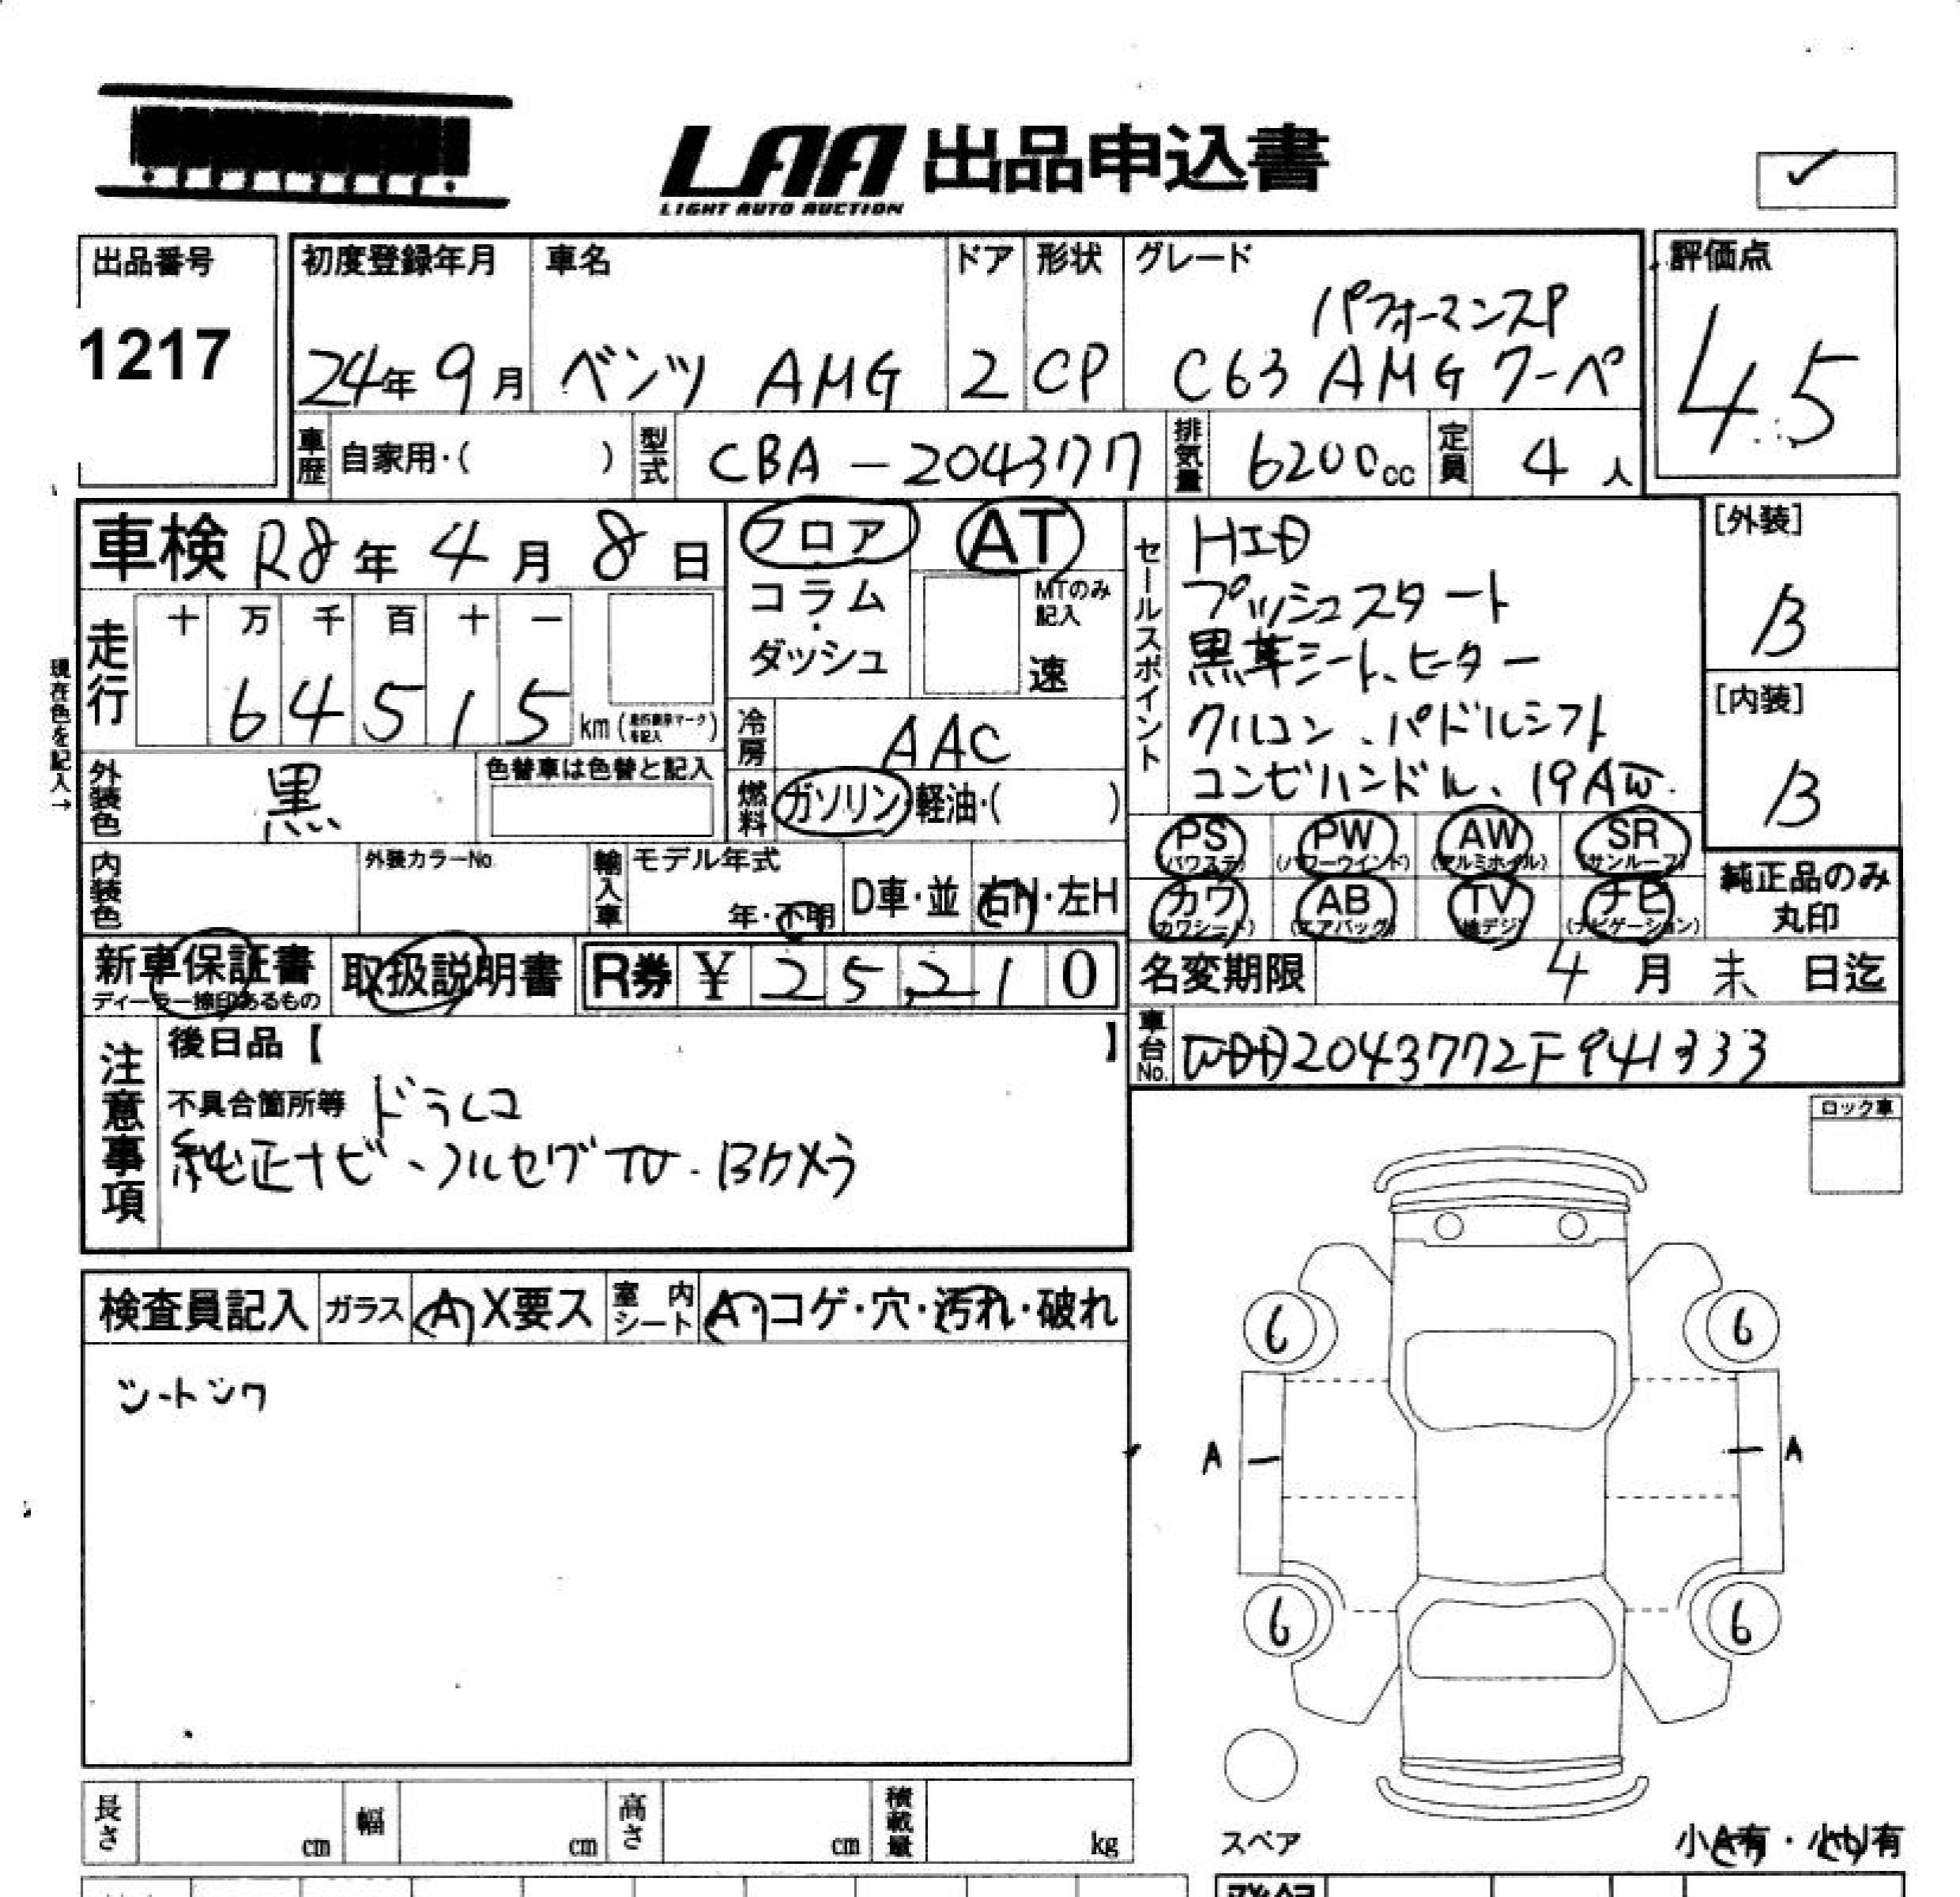 LAA 出品申込書
LIGHT AUTO AUCTION
出品番号
1217
初度登録年月
24年9月
車名
ベンツ AMG
ドア
2
形状
CP
グレード
パフォーマンスP
C63 AMG クーペ
評価点
4.5
車歴
自家用・( )
型式
CBA-204377
排気量
6200cc
定員
4人
車検 R8年4月8日
フロア
コラム・
ダッシュ
AT
MTのみ
記入
速
走行
十 万 千 百 十 一
6 4 5 1 5
km (走行表示マークを記入)
現在色を記入→
冷房
AAC
外装色
黒
色替車は色替と記入
燃料
ガソリン・軽油・( )
内装色
外装カラーNo.
輸入車
モデル年式
年・不明
D車・並
右H・左H
セールスポイント
HID
プッシュスタート
黒革シート、ヒーター
クルコン、パドルシフト
コンビハンドル、19AW.
[外装]
B
[内装]
B
PS (パワステ)
PW (パワーウインド)
AW (アルミホイル)
SR (サンルーフ)
カワ (カワシート)
AB (エアバック)
TV (地デジ)
ナビ (ナビゲーション)
純正品のみ
丸印
新車保証書
ディーラー捺印あるもの
取扱説明書
R券 ¥ 25,210
名変期限 4月末日迄
車台No.
WDD2043772F941333
注意事項
後日品【 】
不具合箇所等 ドラレコ
純正ナビ、フルセグTV、Bカメラ
ロック車
検査員記入
ガラス
A X要ス
室内シート
A・コゲ・穴・汚れ・破れ
シートシワ
6
6
A
A
6
6
スペア
小A有・小U有
長さ cm
幅 cm
高さ cm
積載量 kg